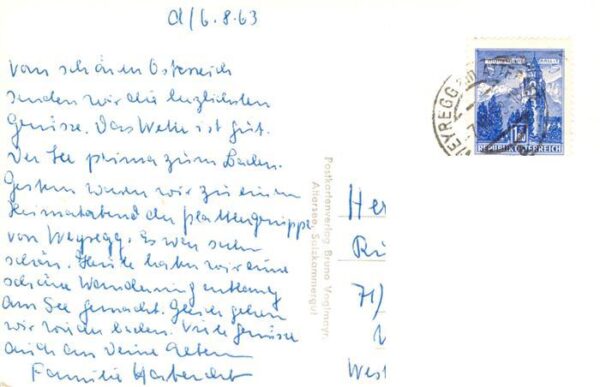 d/6.8.63
Vom schönen Österreich
senden wir die herzlichsten
Grüsse. Das Wetter ist gut.
Der See prima zum Baden.
Gestern waren wir zu einem
Heimatabend der Plattlergruppe
von Weyregg. Es war sehr
schön. Heute haben wir eine
schöne Wanderung entlang
am See gemacht. Gleich gehen
wir wieder baden. Viele Grüsse
auch an Deine Eltern
Familie
WEYREGG am
REPUBLIK ÖSTERREICH
Postkartenverlag Bruno Voglmayr,
Attersee, Salzkammergut
Her
71)
West